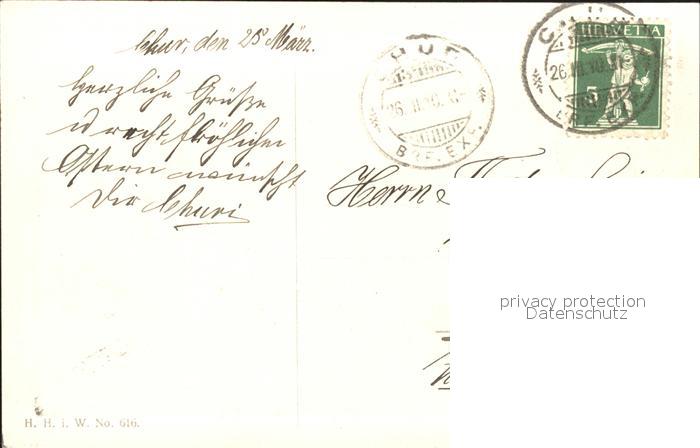 Chur, den 25 März.
Herzliche Grüße
u recht fröhliche
Ostern wünscht
Dir Churi
CHUR
26.III.10.
BRF. EXP.
HELVETIA
5
CHUR
26.III.10.
Herrn
privacy protection
Datenschutz
H. H. i. W. No. 616.